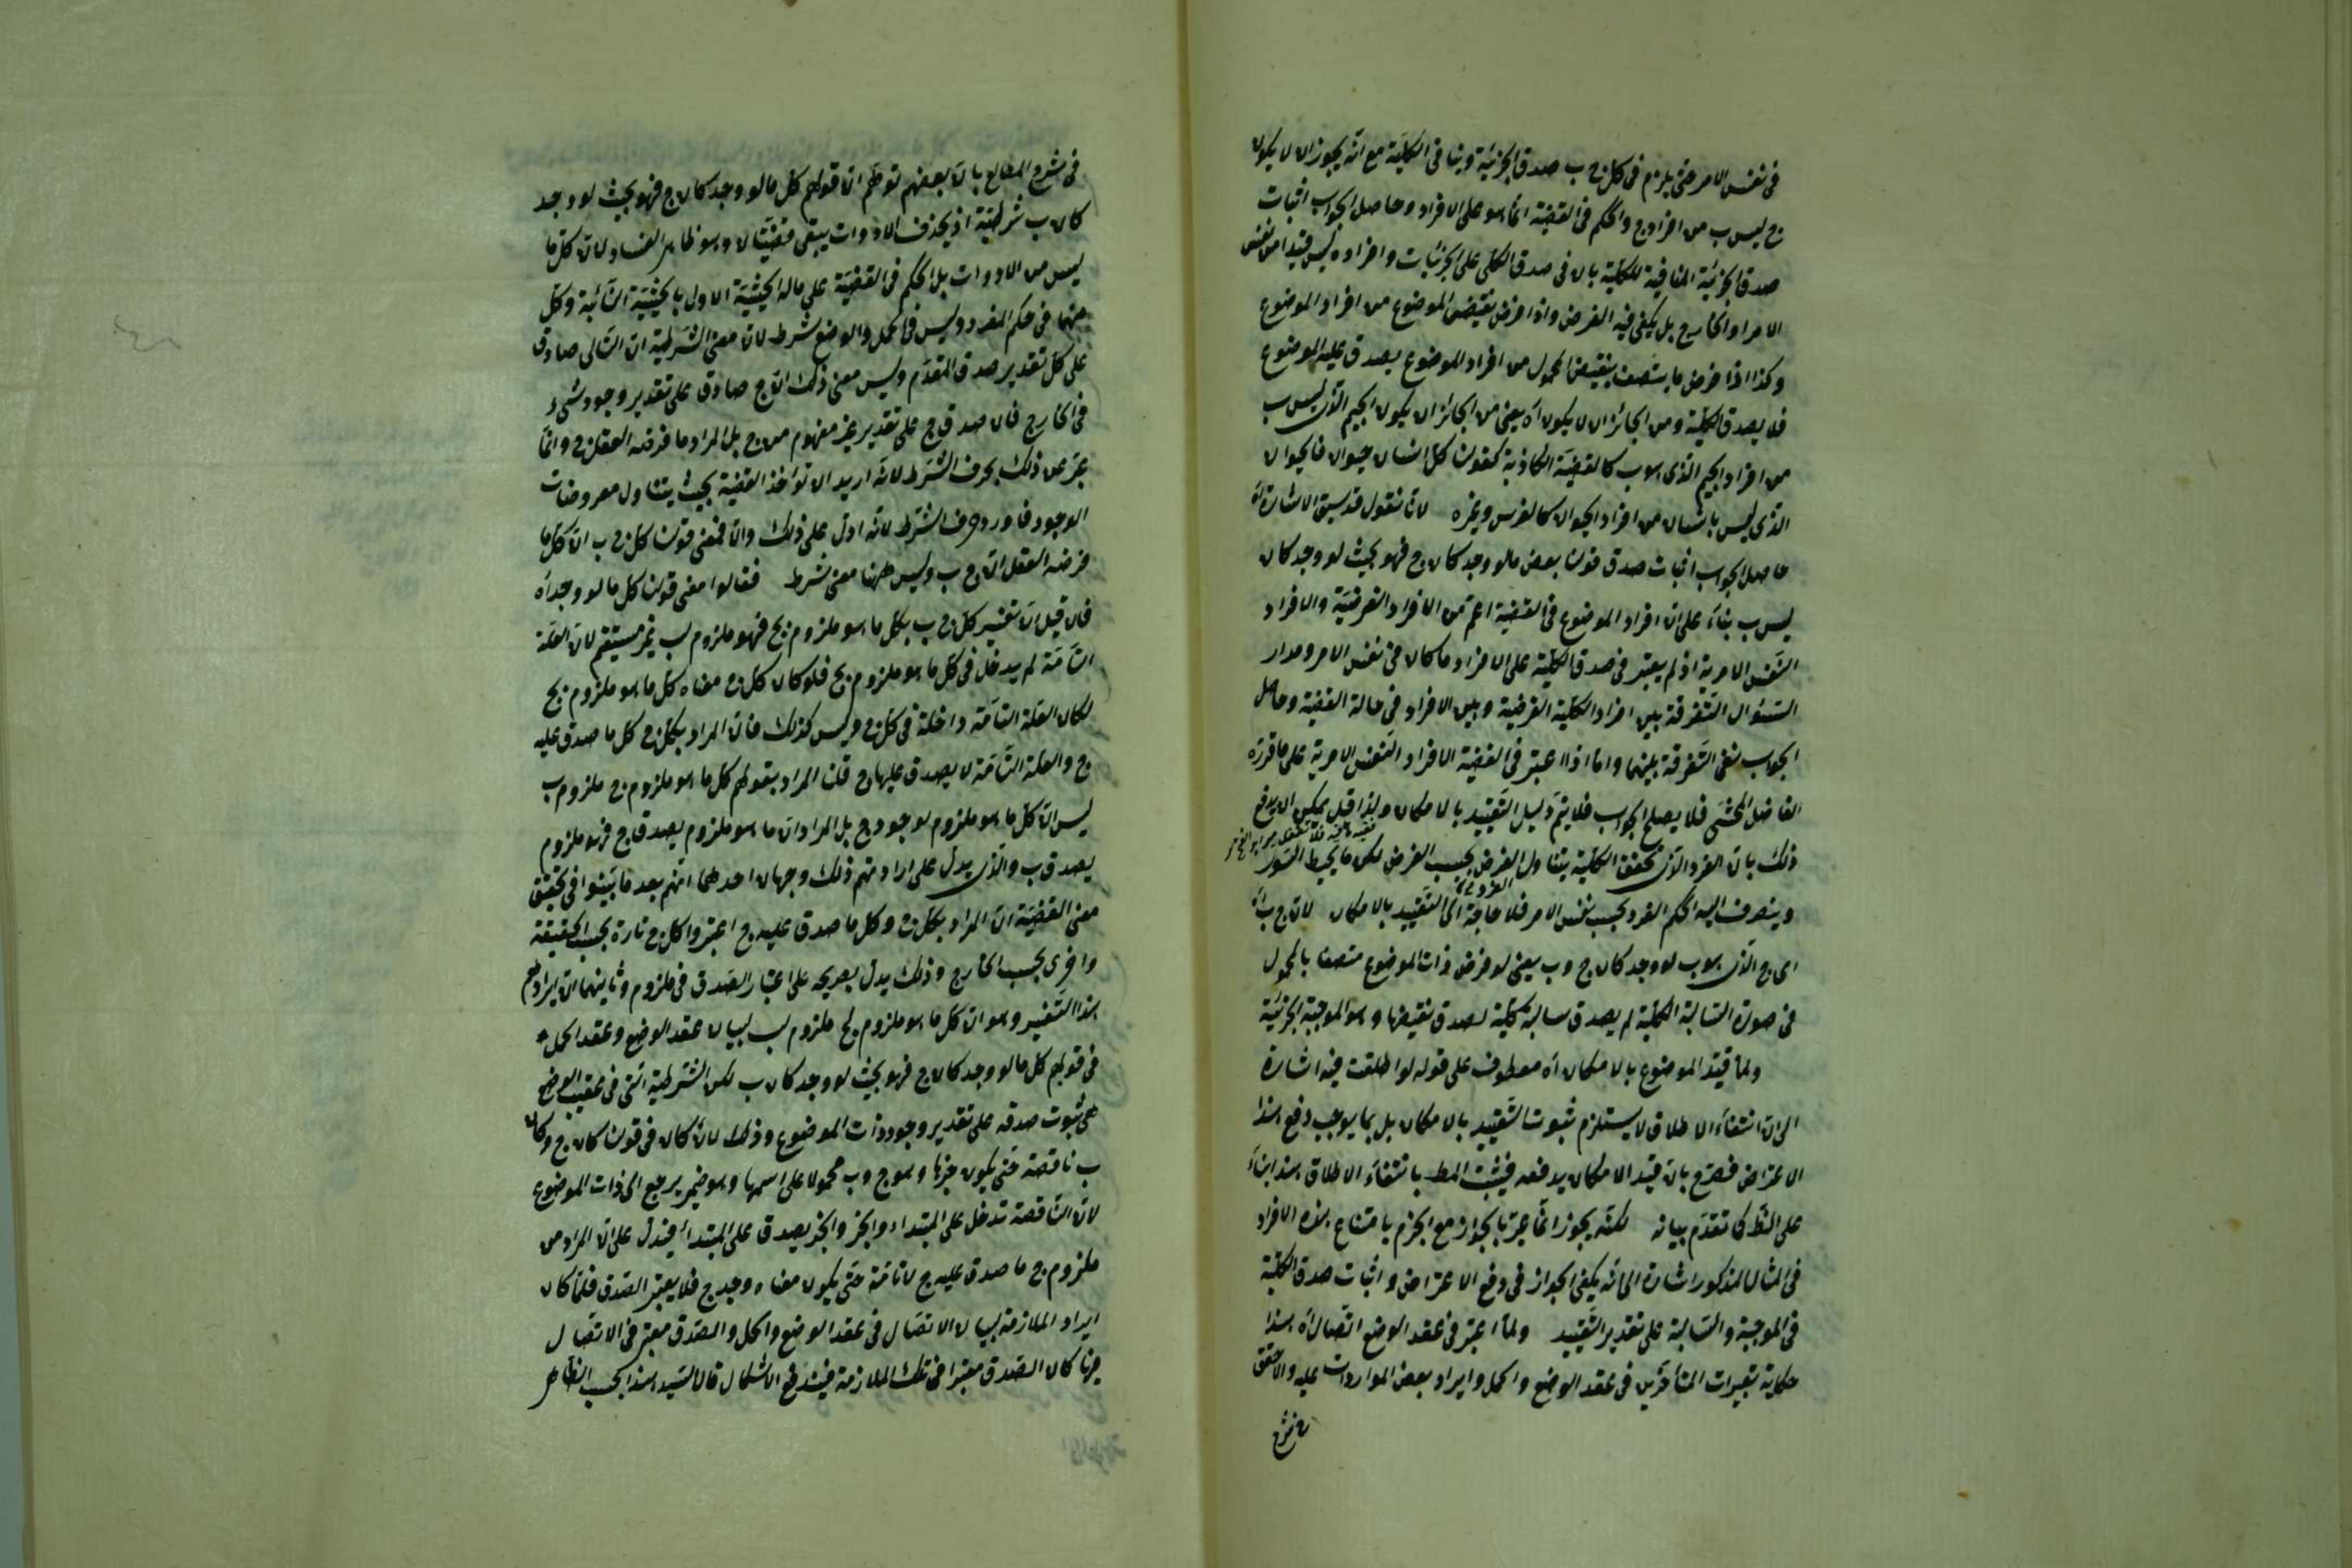 فى نفس الامر حتى يلزم فى كل ج ب صدق الجزئية وينا فى الكلية مع انه يجوز ان لا يكون
ج ليس ب من افراد ج والحكم فى القضية انما هو على الافراد وحاصل الجواب اثبات
صدق الجزئية المنافية للكلية بان فى صدق الكلى على الجزئيات وافراده ليس قيدا من نفس
الامر او الخارج بل يكفى فيه الفرض واذا فرض نقيض الموضوع من افراد الموضوع
وكذا اذا فرض ما يتصف بنقيض المحمول من افراد الموضوع يصدق عليه الموضوع
فلا يصدق الكلية ومن الجائز ان لا يكون اه يعنى من الجائز ان يكون الجيم الذى ليس ب
من افراد الجيم الذى هو ب كالقضية الكاذبة كقولنا كل انسان حيوان فالحيوان
الذى ليس بانسان من افراد الحيوان كالفرس وغيره لانا نقول قد سبق الاشارة اه
حاصل الجواب اثبات صدق قولنا بعض ما لو وجد كان ج فهو بحيث لو وجد كان
ليس ب بناء على ان افراد الموضوع فى القضية اعم من الافراد الفرضية والافراد
النفس الامرية اذ لم يعتبر فى صدق الكلية على الافراد ما كان فى نفس الامر ومدار
السؤال التفرقة بين افراد الكلية الفرضية وبين الافراد فى حالة القضية وحاصل
الجواب نفى التفرقة بينهما واما اذا اعتبر فى القضية الافراد النفس الامرية على ما قرره
الفاضل المحشى فلا يصلح الجواب فلا يتم دليل التقييد بالامكان ولذا قيل يمكن ان يدفع
ذلك بان الفرد الذى تحقق الكلية يتناول الفرض بحسب الفرض لكن ما يحيط السور
وينصرف اليه الحكم الفرد بحسب نفس الامر فلا حاجة الى التقييد بالامكان لان ج ب اه
اى ج الذى هو ب لو وجد كان ج وب يعنى لو فرض ذات الموضوع متصفا بالمحمول
فى صورة السالبة الكلية لم يصدق سالبة كلية لصدق نقيضها وهو الموجبة الجزئية
ولما قيد الموضوع بالامكان اه معطوف على قوله لو اطلقت فيه اشارة
الى ان انتفاء الاطلاق لا يستلزم ثبوت التقييد بالامكان بل بما يوجب دفع هذا
الاعتراض فصرح بان قيد الامكان يدفعه فيثبت المط بانتفاء الاطلاق هذا بناء
على النظر كما تقدم بيانه لكنه يجوز انما عبر بالجواز مع الجزم بامتناع هذه الافراد
فى المثال المذكور اشارة الى انه يكفى الجواز فى دفع الاعتراض واثبات صدق الكلية
فى الموجبة والسالبة على تقدير التقييد ولما اعتبر فى عقد الوضع اتصال اه هذا
حكاية تعبيرات المتأخرين فى عقد الوضع والحمل وايراد بعض الموارد ات عليه والاحقق
فى شرح المطالع بان بعضهم توهم ان قولهم كل ما لو وجد كان ج فهو بحيث لو وجد
كان ب شرطية اذ بحذف الادوات يبقى قضيتان وهو ظاهر الفساد لان كل ما
ليس من الادوات بل الحكم فى القضية على ماله الحيثية الاول بالحيثية الثانية وكل
منهما فى حكم المفرد وليس فى الحمل والوضع شرط لان معنى الشرطية ان التالى صادق
على كل تقدير صدق المقدم وليس معنى ذلك ان ج صادق على تقدير وجود شىء
فى الخارج فان صدق ج على تقدير غير مفهوم من ج بل المراد ما فرضه العقل ج وانما
عبر عن ذلك بحرف الشرط لانه اريد ان تؤخذ القضية بحيث يتناول معروضات
الوجود فاورد حرف الشرط لانه ادل على ذلك والا فمعنى قولنا كل ج ب ان كل ما
فرضه العقل انه ج ب وليس ههنا معنى شرط فقالوا معنى قولنا كل ما لو وجد اه
فان قيل ان تفسير كل ج ب بكل ما هو ملزوم بج فهو ملزوم لب غير مستقيم لان العلة
التامة لم يدخل فى كل ما هو ملزوم بج فلو كان كل ج معناه كل ما هو ملزوم بج
لكان العلة التامة داخلة فى كل ج وليس كذلك فان المراد بكل ج كل ما صدق عليه
ج والعلة التامة لا يصدق عليها ج قلنا المراد بقولهم كل ما هو ملزوم ج ملزوم ب
ليس ان كل ما هو ملزوم لوجود ج بل المراد ان ما هو ملزوم يصدق ج فهو ملزوم
يصدق ب والذى يدل على ارادتهم ذلك وجهان احدهما انهم بعد ما بينوا فى تحقيق
معنى القضية ان المراد بكل ج وكل ما صدق عليه ج اعتبروا كل ج تارة بحسب الحقيقة
واخرى بحسب الخارج وذلك يدل بصريحه على اعتبار الصدق فى ملزوم وثانيهما ان ايرادهم
هذا التفسير وهو ان كل ما هو ملزوم لج ملزوم لب لبيان عقد الوضع وعقد الحمل
فى قولهم كل ما لو وجد كان ج فهو بحيث لو وجد كان ب لكن الشرطية التى فى عقيب الوضع
هى ثبوت صدقه على تقدير وجود ذات الموضوع وذلك لان كان فى قولنا كان ج وكان
ب ناقصة حتى يكون خبرها وهو ج وب محمولا على اسمها وهو ضمير يرجع الى ذات الموضوع
لان الناقصة تدخل على المبتداء والخبر والخبر يصدق على المبتدأ فيدل على ان المراد من
ملزوم ج ما صدق عليه ج لا تامة حتى يكون معناه وجد ج فلا يعتبر الصدق فلما كان
ايراد الملازمة لبيان الاتصال فى عقد الوضع والحمل والصدق معتبر فى الاتصال
ههنا كان الصدق معتبرا فى تلك الملازمة فيندفع الاشكال قال السيد هذا بحسب الظاهر